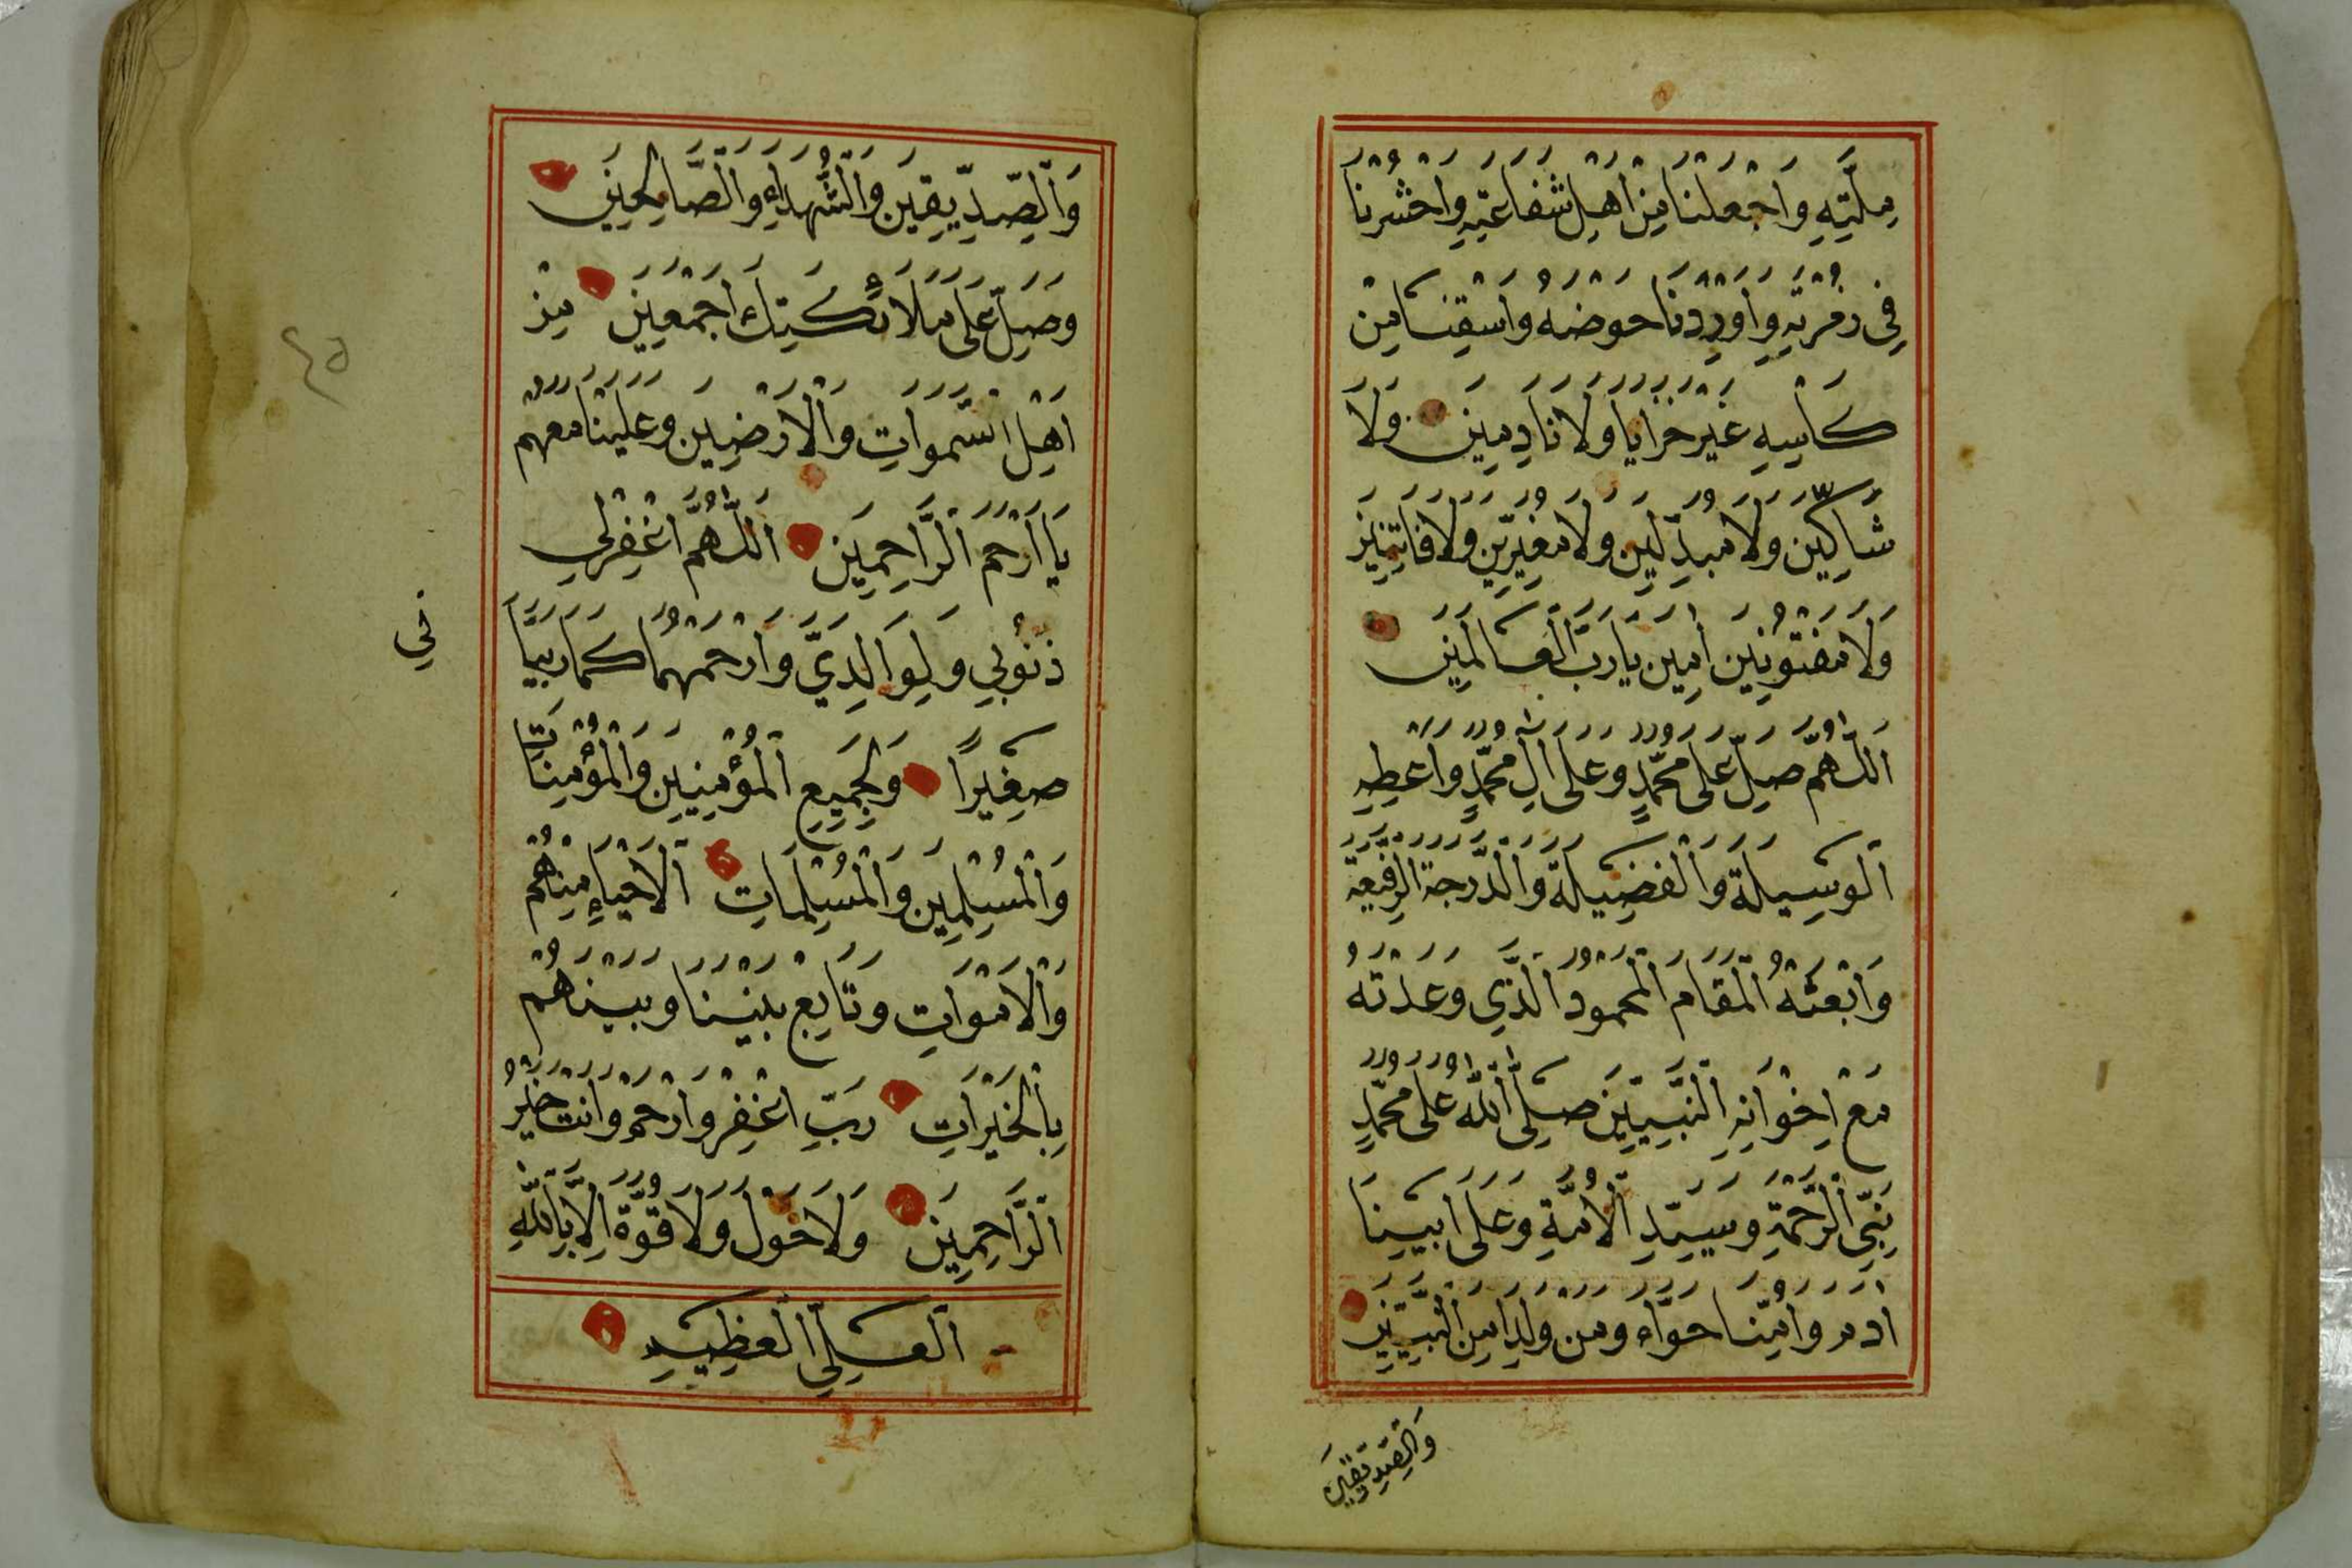 مِلَّتِهِ وَاجْعَلْنَا مِنْ اَهْلِ شَفَاعَتِهِ وَاحْشُرْنَا
فِى زُمْرَتِهِ وَاَوْرِدْنَا حَوْضَهُ وَاسْقِنَا مِنْ
كَاْسِهِ غَيْرَ خَزَايَا وَلَا نَادِمِينَ وَلَا
شَاكِّينَ وَلَا مُبَدِّلِينَ وَلَا مُغَيِّرِينَ وَلَا فَاتِنِينَ
وَلَا مَفْتُونِينَ اٰمِينَ يَارَبَّ الْعَالَمِينَ
اَللّٰهُمَّ صَلِّ عَلَى مُحَمَّدٍ وَعَلَى اٰلِ مُحَمَّدٍ وَاَعْطِهِ
الْوَسِيلَةَ وَالْفَضِيلَةَ وَالدَّرَجَةَ الرَّفِيعَةَ
وَابْعَثْهُ الْمَقَامَ الْمَحْمُودَ الَّذِى وَعَدْتَهُ
مَعَ اِخْوَانِهِ النَّبِيِّينَ صَلَّى اللّٰهُ عَلَى مُحَمَّدٍ
نَبِىِّ الرَّحْمَةِ وَسَيِّدِ الْاُمَّةِ وَعَلَى اَبِينَا
اٰدَمَ وَاُمِّنَا حَوَّاءَ وَمَنْ وَلَدَا مِنَ النَّبِيِّينَ
وَالصِّدِّيقِينَ
وَالصِّدِّيقِينَ وَالشُّهَدَاءِ وَالصَّالِحِينَ
وَصَلِّ عَلَى مَلَائِكَتِكَ اَجْمَعِينَ مِنْ
اَهْلِ السَّمَوَاتِ وَالْاَرَضِينَ وَعَلَيْنَا مَعَهُمْ
يَا اَرْحَمَ الرَّاحِمِينَ اَللّٰهُمَّ اغْفِرْ لِى
ذُنُوبِى وَلِوَالِدَىَّ وَارْحَمْهُمَا كَمَا رَبَّيَا
فِي
صَغِيرًا وَلِجَمِيعِ الْمُؤْمِنِينَ وَالْمُؤْمِنَاتِ
وَالْمُسْلِمِينَ وَالْمُسْلِمَاتِ الْاَحْيَاءِ مِنْهُمْ
وَالْاَمْوَاتِ وَتَابِعْ بَيْنَنَا وَبَيْنَهُمْ
بِالْخَيْرَاتِ رَبِّ اغْفِرْ وَارْحَمْ وَاَنْتَ خَيْرُ
الرَّاحِمِينَ وَلَا حَوْلَ وَلَا قُوَّةَ اِلَّا بِاللّٰهِ
الْعَلِىِّ الْعَظِيمِ
٤٥